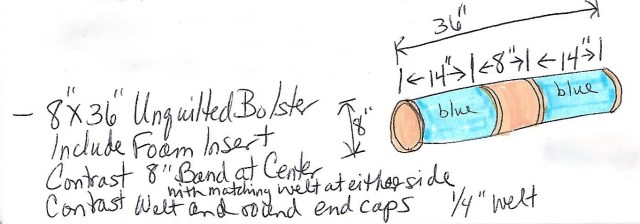 36"
14" 8" 14"
blue blue
8"
- 8" X 36" Unquilted Bolster
Include Foam Insert
Contrast 8" Band at Center
with matching welt at either side
Contast Welt and round end caps 1/4" welt